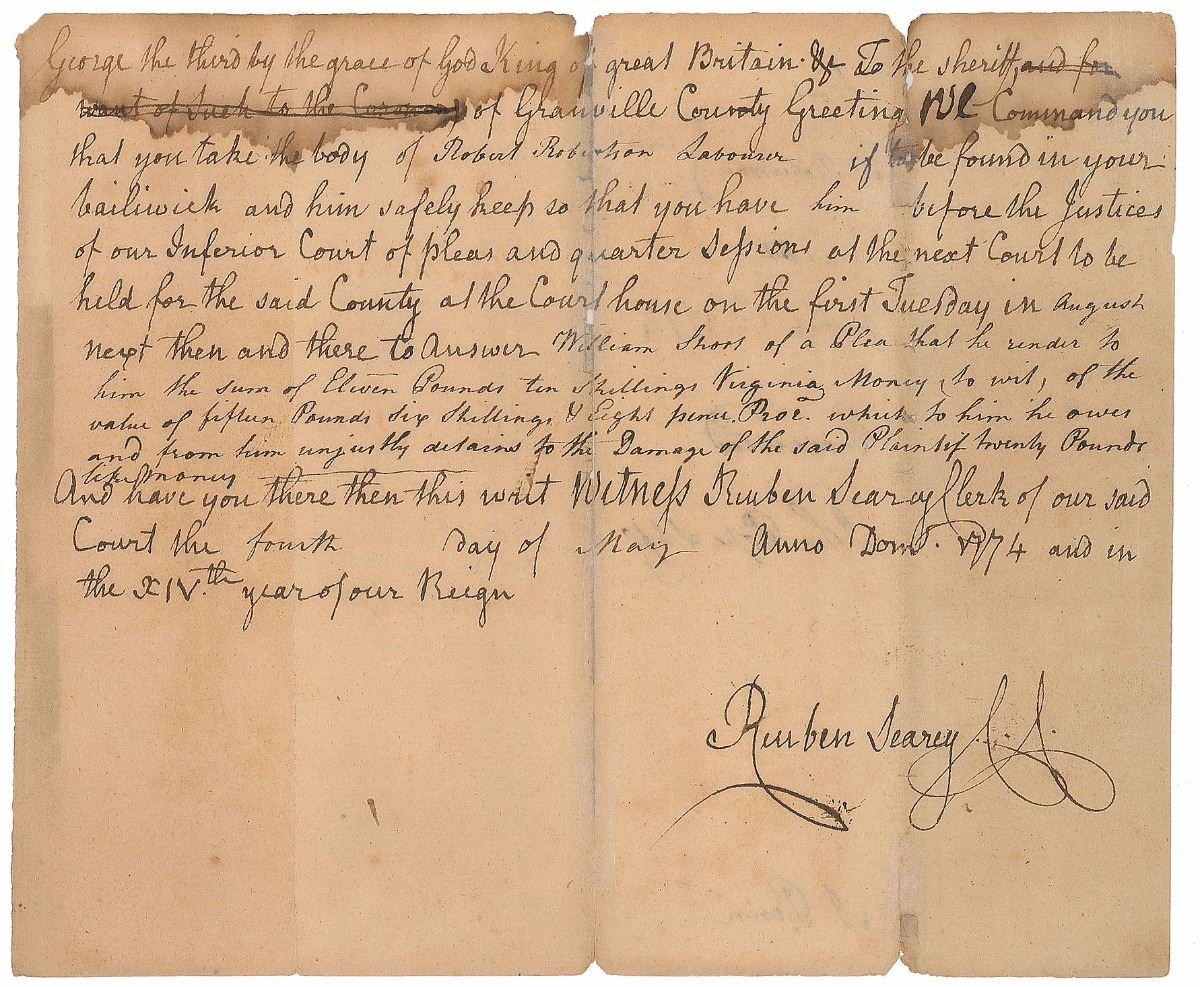 George the third by the grace of God King of great Britain &c To the sheriff and for
want of such to the Coroner of Granville County Greeting We Command you
that you take the body of Robert Robertson Labourer if to be found in your
bailiwick and him safely keep so that you have him before the Justices
of our Inferior Court of pleas and quarter Sessions at the next Court to be
held for the said County at the Court house on the first Tuesday in August
next then and there to Answer William Short of a Plea that he render to
him the sum of Eleven Pounds ten Shillings Virginia Money, to wit, of the
value of fifteen Pounds six Shillings & Eight pence Proc. which to him he owes
and from him unjustly detains to the Damage of the said Plaintif twenty Pounds
like money
And have you there then this writ Witness Reuben Searcy Clerk of our said
Court the fourth day of May Anno Dom. 1774 and in
the XIV.th year of our Reign
Reuben Searcy